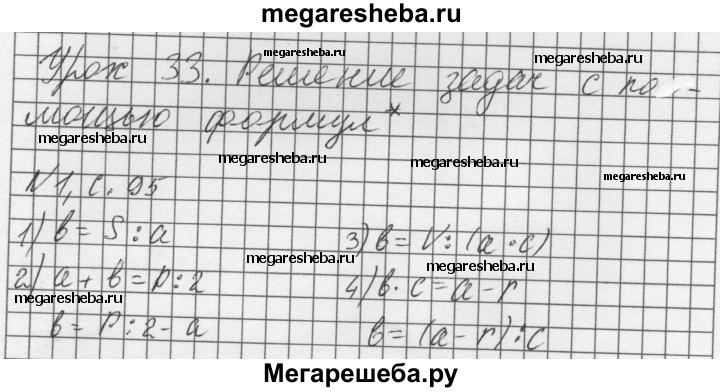 megaresheba.ru
Урок 33. Решение задач с по-
мощью формул*
№1, с. 95
1) в = S : а
2) а + в = Р : 2
в = Р : 2 - а
3) в = V : (а · с)
4) в · с = а - r
в = (а - r) : с
megaresheba.ru
megaresheba.ru
megaresheba.ru
megaresheba.ru
megaresheba.ru
megaresheba.ru
megaresheba.ru
megaresheba.ru
megaresheba.ru
Мегарешеба.ру